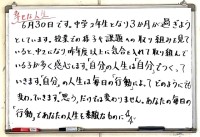 幸せな人生
6月30日です。中学2年生となり3か月が過ぎよう
としています。授業での様子や課題への取り組みを見て
いると、中2になり昨年度以上に気合を入れて取り組んで
いる子が多く感心します。"自分の人生は自分でつくって
いきます。自分の人生は毎日の「行動」によってどのようにも
変わっていきます。"思う"だけでは変わりません。あなたの毎日の
「行動」であなたの人生を素敵なものに